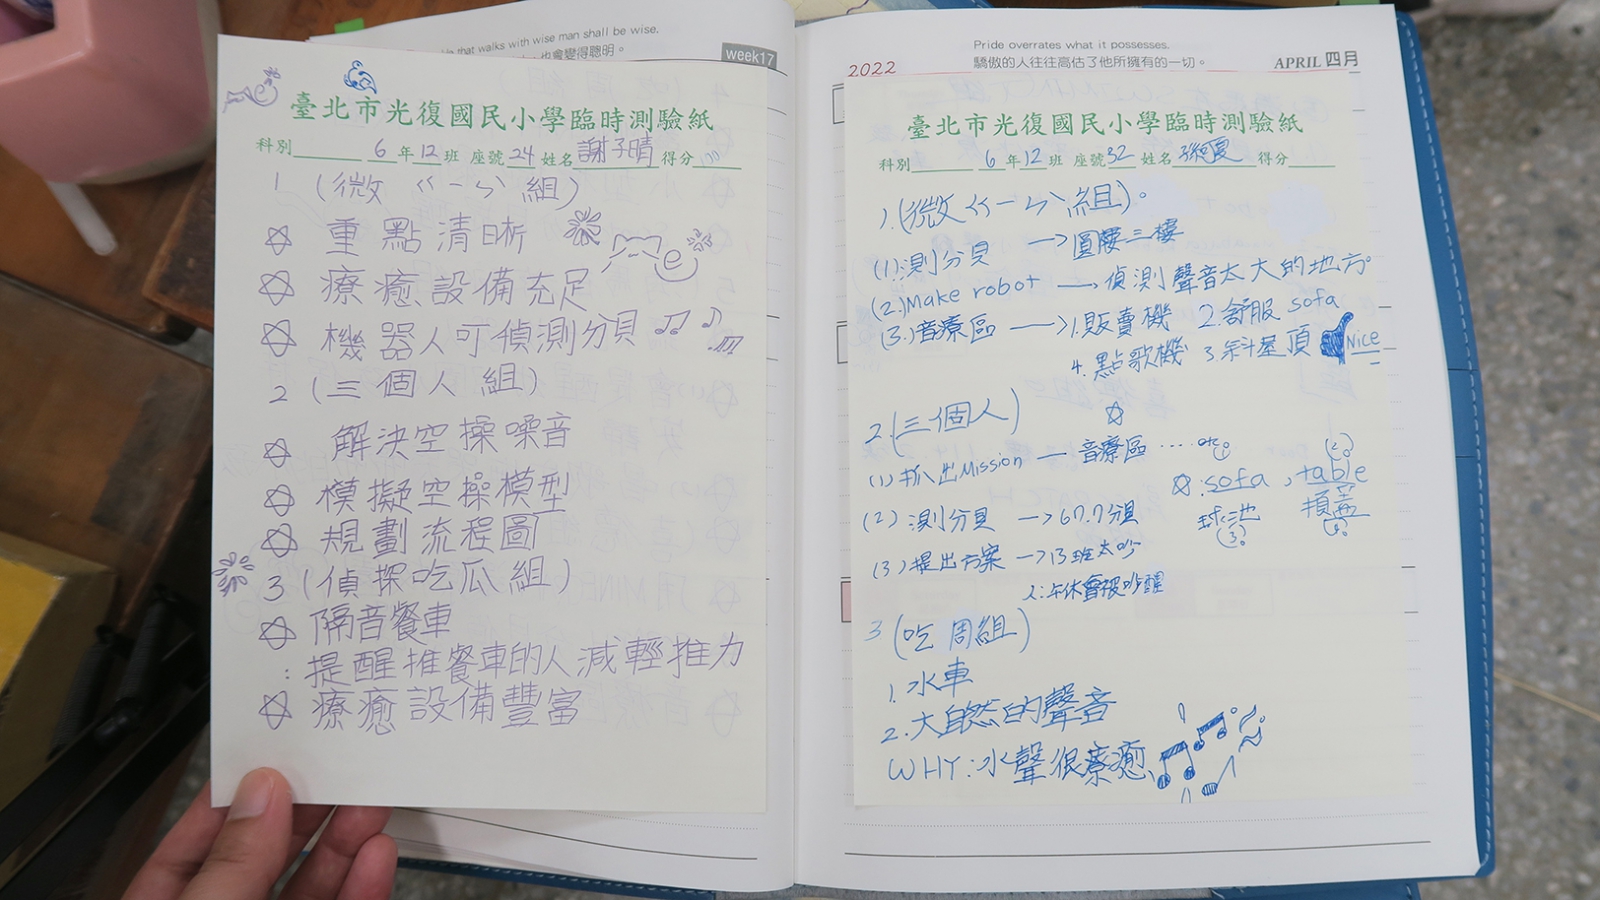 that walks with wise man shall be wise.
也會變得聰明。
week17
臺北市光復國民小學臨時測驗紙
科別 6年12班 座號24 姓名謝子晴 得分100
1 (微ㄍㄧㄣ組)
☆ 重點清晰
☆ 療癒設備充足
☆ 機器人可偵測分貝
2 (三個人組)
☆ 解決空操噪音
☆ 模擬空操模型
☆ 規劃流程圖
3 (偵探吃瓜組)
☆ 隔音餐車
：提醒推餐車的人減輕推力
☆ 療癒設備豐富
Pride overrates what it possesses.
驕傲的人往往高估了他所擁有的一切。
2022
APRIL 四月
臺北市光復國民小學臨時測驗紙
科別 6年12班 座號32 姓名 得分
1.(微ㄍㄧㄣ組)。
(1)測分貝 → 圓樓三樓
(2.)Make robot → 偵測聲音太大的地方。
(3.)音療區 → 1.販賣機 2.舒服sofa
4.點歌機 3.斜屋頂 Nice
2.(三個人)
(1)抓出Mission — 音療區 ‥‥etc
☆:sofa①, table②
球池③ 頂蓋
(2)測分貝 → 67.7分貝
(3)提出方案 → 13班太吵
2:午休會被吵醒
3 (吃周組)
1.水車
2.大自然的聲音
WHY:水聲很療癒